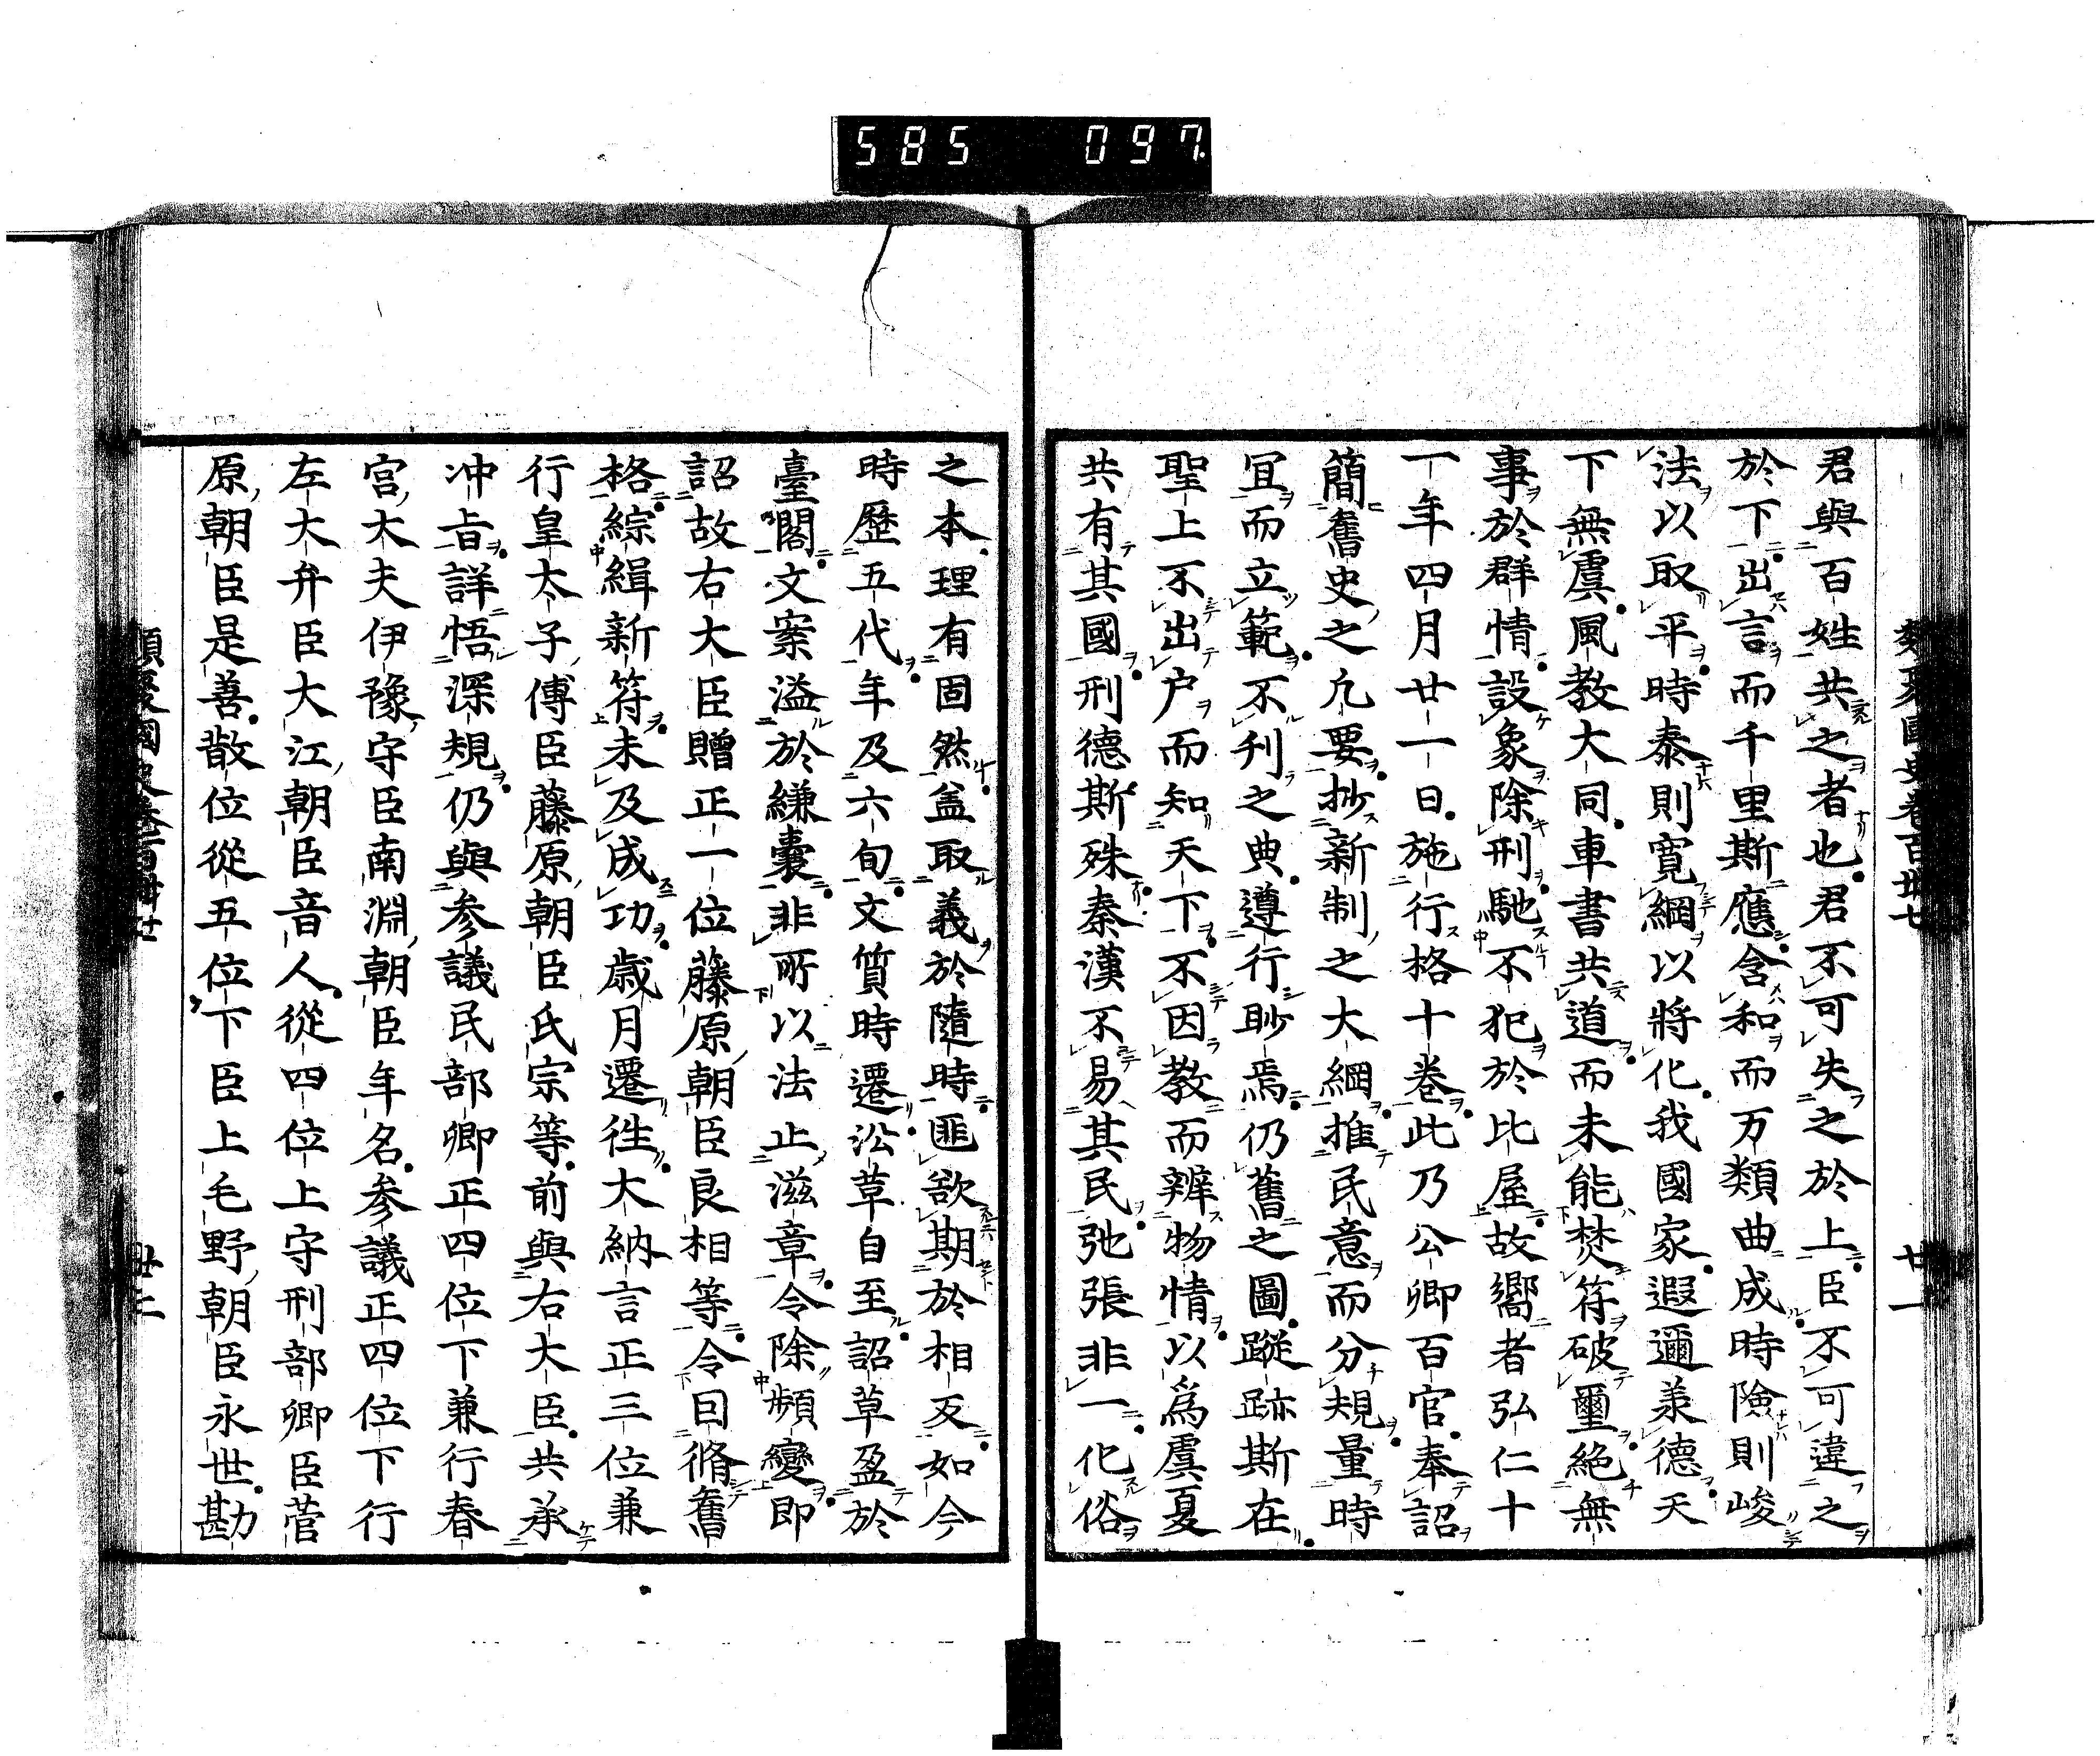 585 097
君與百姓共之者也君不可失之於上臣不可違之
於下出言而千里斯應含和而万類曲成時險則峻
法以取平時泰則寛綱以將化我國家遐邇羕德天
下無虞風教大同車書共道而未能焚符破璽絶無
事於群情設象除刑馳不犯於比屋故嚮者弘仁十
一年四月廿一日施行格十卷此乃公卿百官奉詔
簡舊史之九要抄新制之大綱推民意而分規量時
冝而立範不刋之典遵行眇焉仍舊之圖蹤跡斯在
聖上不出户而知天下不因教而辨物情以爲虞夏
共有其國刑德斯殊秦漢不易其民弛張非一化俗
之本理有固然盖取義於隨時匪欲期於相反如今
時歷五代年及六旬文質時遷㳂草自至詔草盈於
臺閣文案溢於縑囊非所以法止滋章令除頻變即
詔故右大臣贈正一位藤原朝臣良相等令曰脩舊
格綜緝新符未及成功歳月遷徃大納言正三位兼
行皇太子傅臣藤原朝臣氏宗等前與右大臣共承
冲旨詳悟深規仍與参議民部卿正四位下兼行春
宮大夫伊豫守臣南淵朝臣年名参議正四位下行
左大弁臣大江朝臣音人從四位上守刑部卿臣菅
原朝臣是善散位從五位下臣上毛野朝臣永世勘